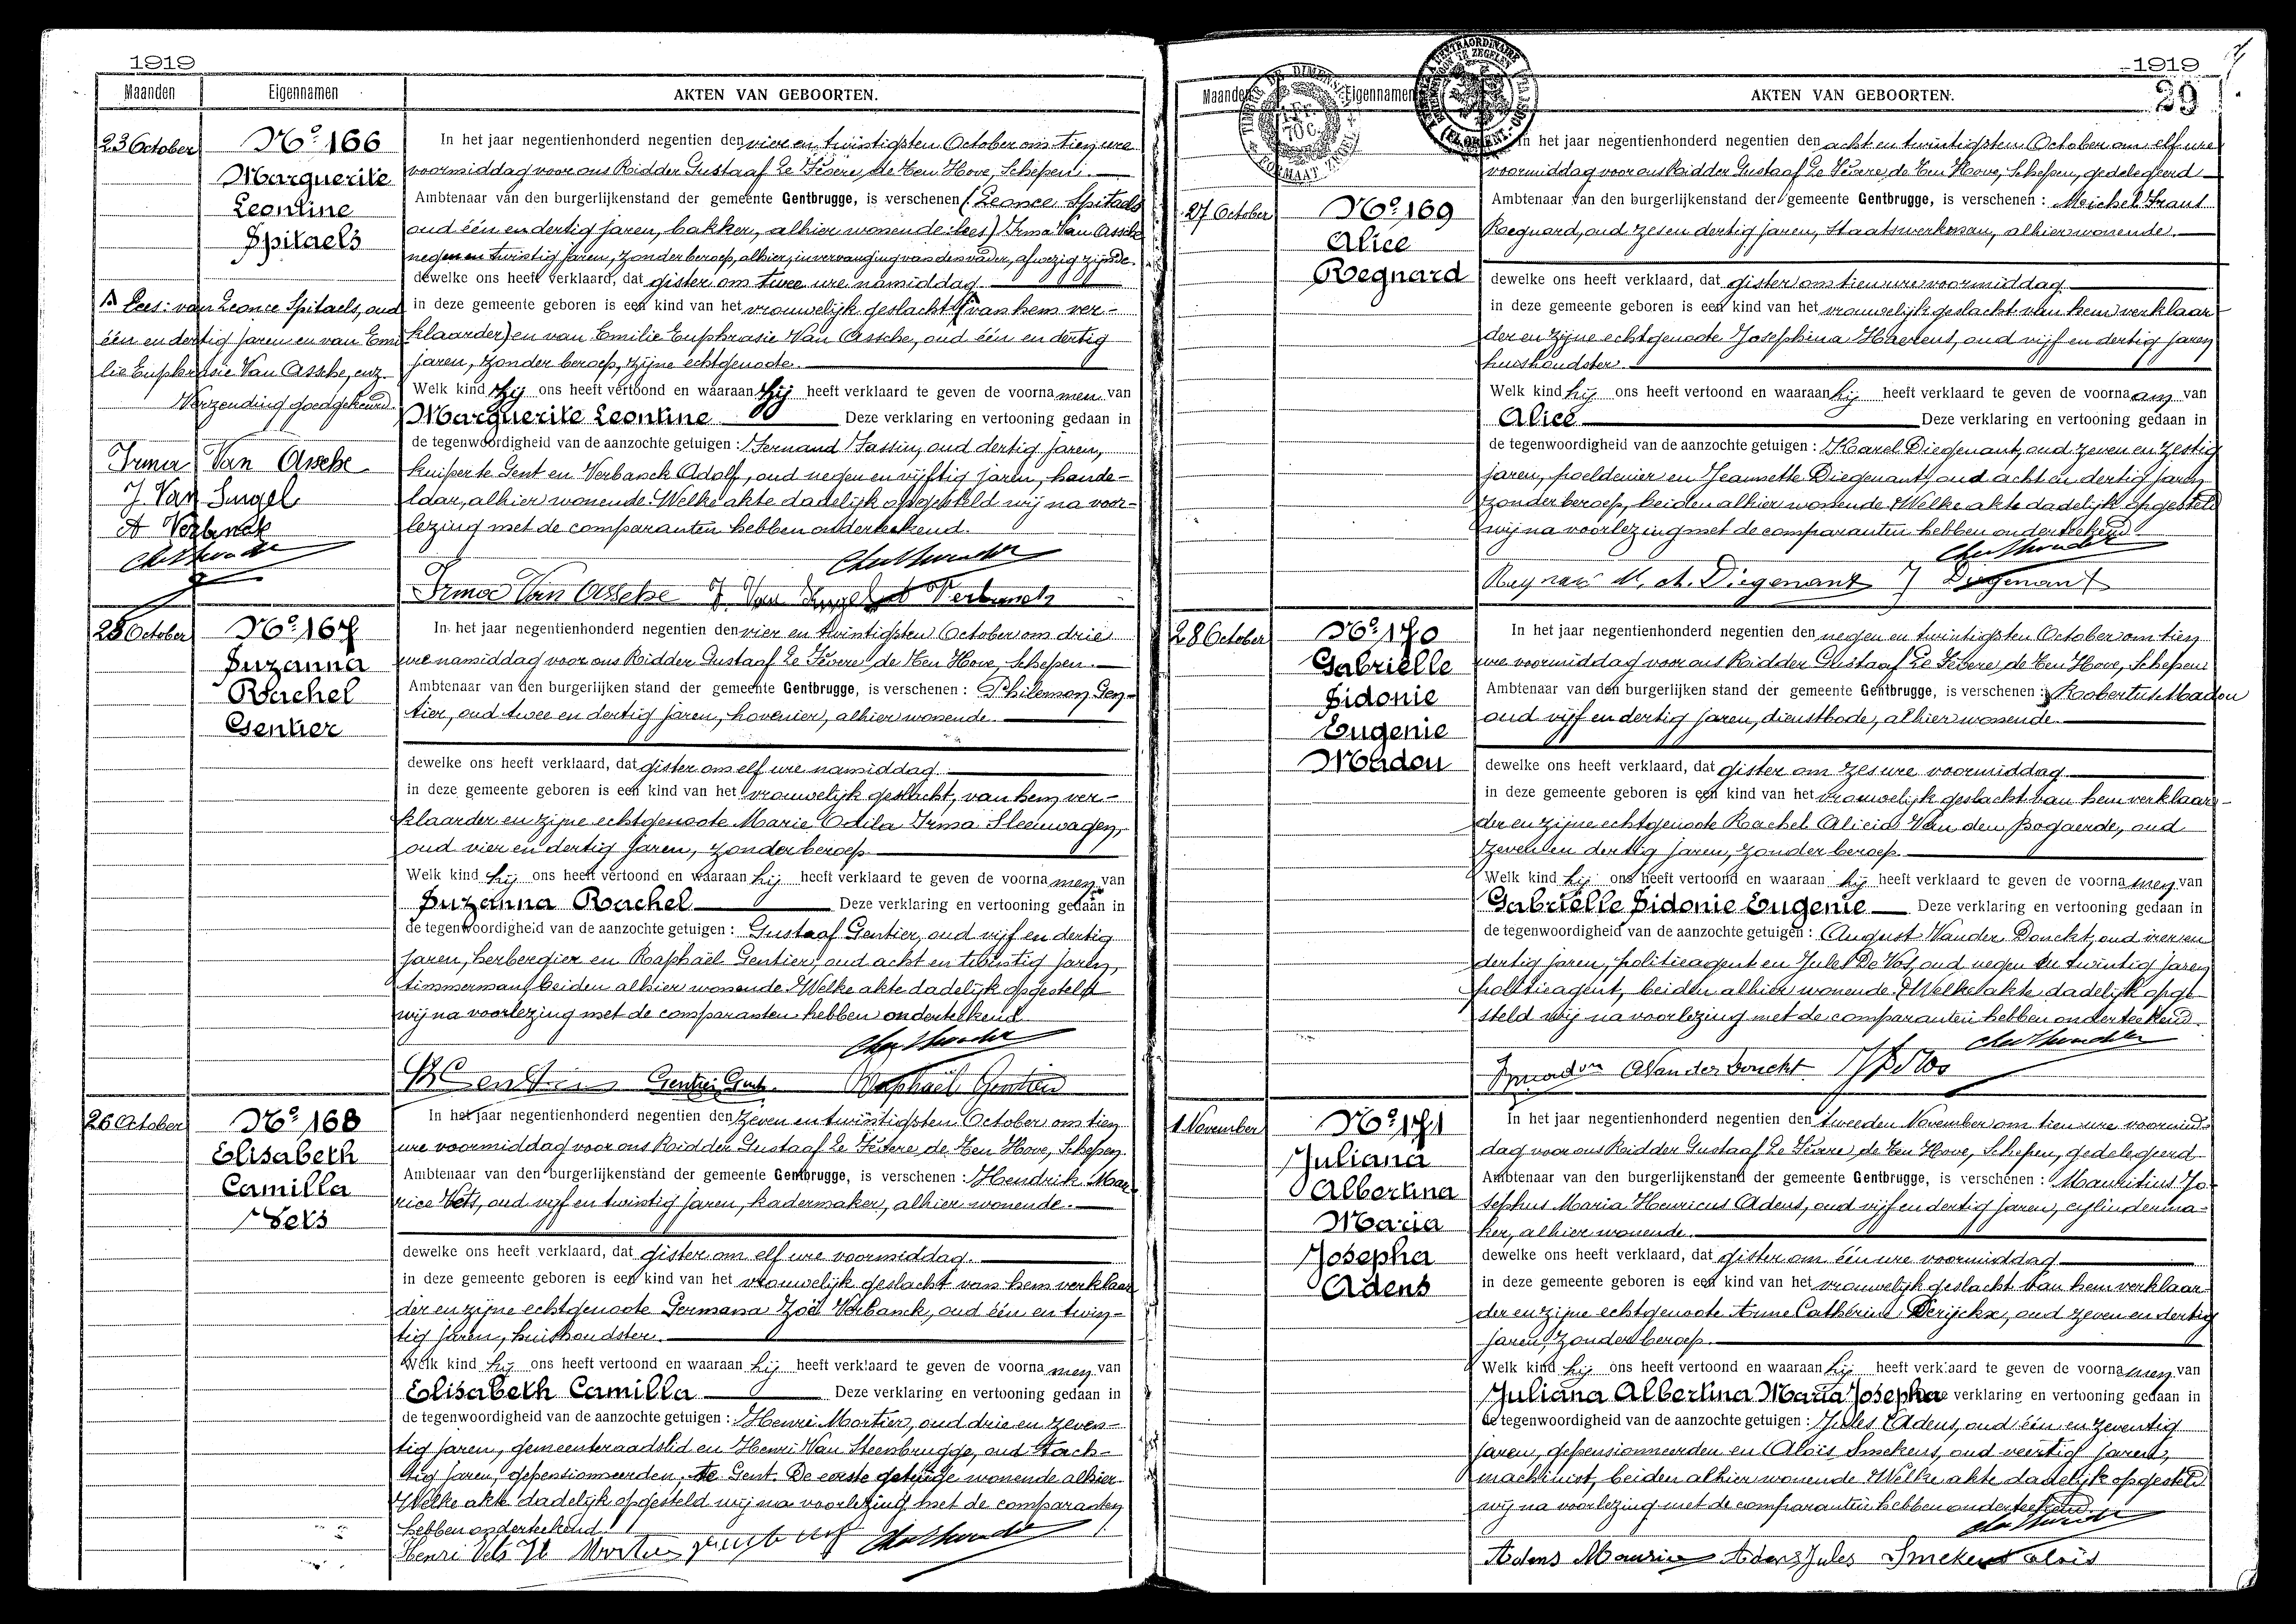 1919
Maanden Eigennamen AKTEN VAN GEBOORTEN.
23 October
No 166
Marguerite
Leontine
Spitaels
In het jaar negentienhonderd negentien den vier en twintigsten October om tien ure
voormiddag voor ons Ridder Gustaaf Le Fevere de Ten Hove, Schepen
Ambtenaar van den burgerlijkenstand der gemeente Gentbrugge, is verschenen (Leonce Spitaels
oud één en dertig jaren, bakker, alhier wonende: lees) Irma Van Assche
negen en twintig jaren, zonder beroep, alhier, in vervanging van den vader, afwezig zijnde.
dewelke ons heeft verklaard, dat gister om twee ure namiddag
in deze gemeente geboren is een kind van het vrouwelijk geslacht (van hem ver-
klaarder) en van Emilie Euphrasie Van Assche, oud één en dertig
jaren, zonder beroep, zijne echtgenoote.
Welk kind zij ons heeft vertoond en waaraan zij heeft verklaard te geven de voornamen van
Marguerite Leontine Deze verklaring en vertooning gedaan in
de tegenwoordigheid van de aanzochte getuigen: Fernand Sassin, oud dertig jaren,
kuiper te Gent en Verbanck Adolf, oud negen en vijftig jaren, hande-
laar, alhier wonende. Welke akte dadelijk opgesteld wij na voor-
lezing met de comparanten hebben onderteekend.
Irma Van Assche J. Van A Verbanck
Lees: van Leonce Spitaels, oud
één en dertig jaren en van Emi
lie Euphrasie Van Assche, enz.
Verzending goedgekeurd
Irma Van Assche
J. Van Singel
A Verbanck
25 October
No 167
Suzanna
Rachel
Gentier
In het jaar negentienhonderd negentien den vier en twintigsten October om drie
ure namiddag voor ons Ridder Gustaaf Le Fevere de Ten Hove, Schepen.
Ambtenaar van den burgerlijken stand der gemeente Gentbrugge, is verschenen: Philemon Gen-
tier, oud twee en dertig jaren, hovenier, alhier wonende.
dewelke ons heeft verklaard, dat gister om elf ure namiddag
in deze gemeente geboren is een kind van het vrouwelijk geslacht, van hem ver-
klaarder en zijne echtgenoote Marie Odila Irma Sleeuwagen,
oud vier en dertig jaren, zonder beroep
Welk kind hij ons heeft vertoond en waaraan hij heeft verklaard te geven de voornamen van
Suzanna Rachel Deze verklaring en vertooning gedaan in
de tegenwoordigheid van de aanzochte getuigen: Gustaaf Gentier, oud vijf en dertig
jaren, herbergier en Raphaël Gentier, oud acht en twintig jaren,
timmerman, beiden alhier wonende. Welke akte dadelijk opgesteld
wij na voorlezing met de comparanten hebben onderteekend
Gentier Gust. Raphaël Gentier
26 October
No 168
Elisabeth
Camilla
Vets
In het jaar negentienhonderd negentien den zeven en twintigsten October om tien
ure voormiddag voor ons Ridder Gustaaf Le Fevere de Ten Hove, Schepen
Ambtenaar van den burgerlijkenstand der gemeente Gentbrugge, is verschenen: Hendrik Mau-
rice Vets, oud vijf en twintig jaren, kadermaker, alhier wonende.
dewelke ons heeft verklaard, dat gister om elf ure voormiddag.
in deze gemeente geboren is een kind van het vrouwelijk geslacht van hem verklaar
der en zijne echtgenoote Germana Zoë Verbanck, oud één en twin-
tig jaren, huishoudster.
Welk kind hij ons heeft vertoond en waaraan hij heeft verklaard te geven de voornamen van
Elisabeth Camilla Deze verklaring en vertooning gedaan in
de tegenwoordigheid van de aanzochte getuigen: Henri Mortier, oud drie en zeven-
tig jaren, gemeenteraadslid en Henri Van Steenbrugge, oud tach-
tig jaren, gepensionneerden, te Gent. De eerste getuige wonende alhier.
Welke akte dadelijk opgesteld wij na voorlezing met de comparanten
hebben onderteekend.
Henri Vets H Mortier
1919
29
Maanden Eigennamen AKTEN VAN GEBOORTEN.
27 October
No 169
Alice
Regnard
In het jaar negentienhonderd negentien den acht en twintigsten October om elf ure
voormiddag voor ons Ridder Gustaaf Le Fevere de Ten Hove, Schepen, gedelegeerd
Ambtenaar van den burgerlijkenstand der gemeente Gentbrugge, is verschenen: Meichel Frant
Regnard, oud zes en dertig jaren, Staatswerkman, alhier wonende.
dewelke ons heeft verklaard, dat gister om tien ure voormiddag
in deze gemeente geboren is een kind van het vrouwelijk geslacht van hem verklaar
der en zijne echtgenoote Josephina Haerens, oud vijf en dertig jaren
huishoudster.
Welk kind hij ons heeft vertoond en waaraan hij heeft verklaard te geven de voornaam van
Alice Deze verklaring en vertooning gedaan in
de tegenwoordigheid van de aanzochte getuigen: Karel Diegenant, oud zeven en zestig
jaren, poeldenier en Jeannette Diegenant, oud acht en dertig jaren
zonder beroep, beiden alhier wonende. Welke akte dadelijk opgesteld
wij na voorlezing met de comparanten hebben onderteekend.
ch. Diegenant J Diegenant
28 October
No 170
Gabrielle
Sidonie
Eugenie
Madou
In het jaar negentienhonderd negentien den negen en twintigsten October om tien
ure voormiddag voor ons Ridder Gustaaf Le Fevere de Ten Hove, Schepen
Ambtenaar van den burgerlijken stand der gemeente Gentbrugge, is verschenen: Robertus Madou
oud vijf en dertig jaren, dienstbode, alhier wonende.
dewelke ons heeft verklaard, dat gister om zes ure voormiddag
in deze gemeente geboren is een kind van het vrouwelijk geslacht van hem verklaar-
der en zijne echtgenoote Rachel Alicia Van den Bogaerde, oud
zeven en dertig jaren, zonder beroep.
Welk kind hij ons heeft vertoond en waaraan hij heeft verklaard te geven de voornamen van
Gabrielle Sidonie Eugenie Deze verklaring en vertooning gedaan in
de tegenwoordigheid van de aanzochte getuigen: August Vander Donckt, oud vier en
dertig jaren, politieagent en Jules De Vos, oud negen en twintig jaren
politieagent, beiden alhier wonende. Welke akte dadelijk opge-
steld wij na voorlezing met de comparanten hebben onderteekend.
A Vander Donckt J De Vos
1 November
No 171
Juliana
Albertina
Maria
Josepha
Adens
In het jaar negentienhonderd negentien den tweeden November om tien ure voormid-
dag voor ons Ridder Gustaaf Le Fevere de Ten Hove, Schepen, gedelegeerd
Ambtenaar van den burgerlijkenstand der gemeente Gentbrugge, is verschenen: Mauritius Jo-
sephus Maria Henricus Adens, oud vijf en dertig jaren, cylinderma-
ker, alhier wonende.
dewelke ons heeft verklaard, dat gister om één ure voormiddag
in deze gemeente geboren is een kind van het vrouwelijk geslacht van hem verklaar-
der en zijne echtgenoote Anne Cathérine Derijckx, oud zeven en dertig
jaren, zonder beroep.
Welk kind hij ons heeft vertoond en waaraan hij heeft verklaard te geven de voornamen van
Juliana Albertina Maria Josepha Deze verklaring en vertooning gedaan in
de tegenwoordigheid van de aanzochte getuigen: Jules Adens, oud één en zeventig
jaren, gepensionneerden en Aloïs Smekens, oud veertig jaren,
machinist, beiden alhier wonende. Welke akte dadelijk opgesteld
wij na voorlezing met de comparanten hebben onderteekend.
Adens Maurice Adens Jules Smekens Aloïs